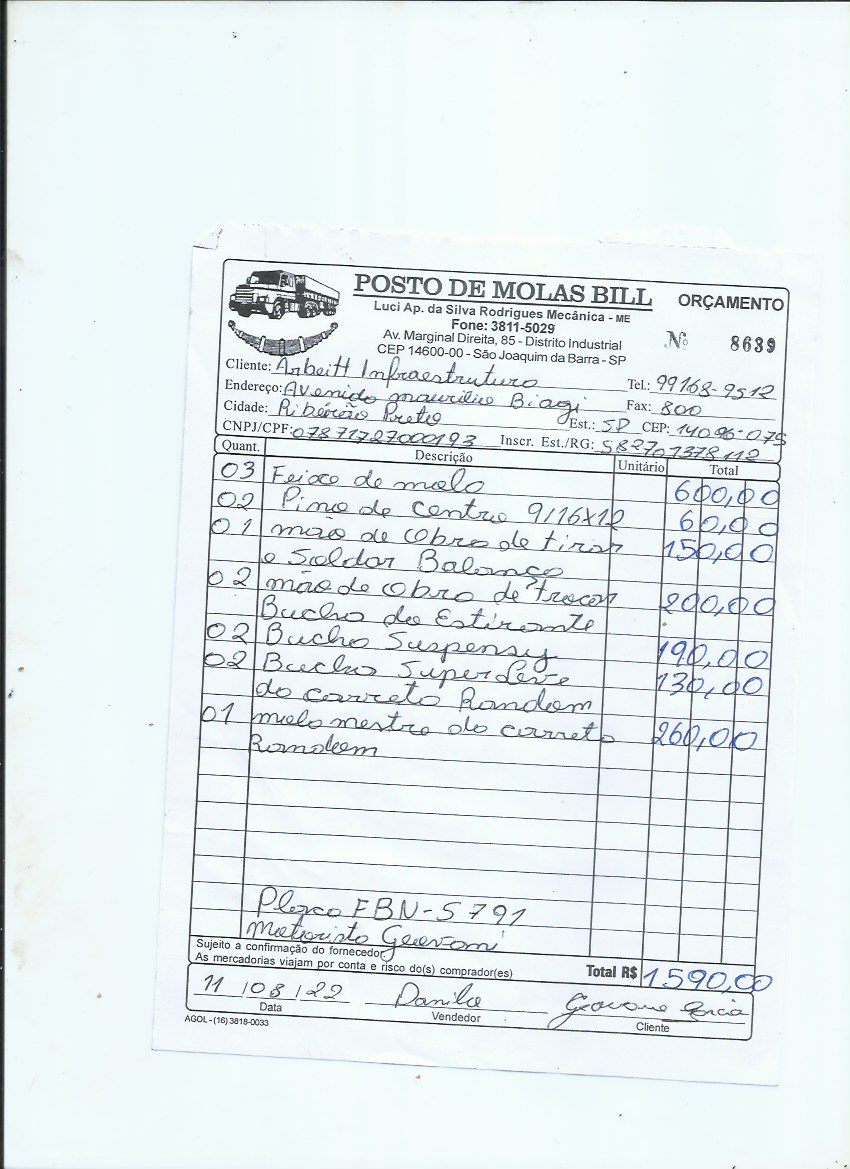 POSTO DE MOLAS BILL ORÇAMENTO
Luci Ap. da Silva Rodrigues Mecânica - ME
Fone: 3811-5029
Nº 8639
Av. Marginal Direita, 85 - Distrito Industrial
CEP 14600-00 - São Joaquim da Barra - SP
Cliente: Arbeitt Infraestrutura Tel.: 99168-9512
Endereço: Avenida maurilio Biagi Fax: 800
Cidade: Ribeirão Preto Est.: SP CEP: 14096-075
CNPJ/CPF: 07871727000193 Inscr. Est./RG: 582707378112
Quant. Descrição Unitário Total
03 Feixe de mola 600,00
02 Pino de centro 9/16x12 60,00
01 mão de Obra de tirar 150,00
e Soldar Balanço
02 mão de Obra de trocar 200,00
Bucha do Estirante
02 Bucha Suspensy 190,00
02 Bucha Super Leve 130,00
da carreta Random
01 mola mestra da carreta 260,00
Random
Placa FBN-5791
Motorista Geovani
Sujeito a confirmação do fornecedor
As mercadorias viajam por conta e risco do(s) comprador(es)
Total R$ 1590,00
11/08/22 Danila Geovane
Data Vendedor Cliente
AGOL - (16) 3818-0033